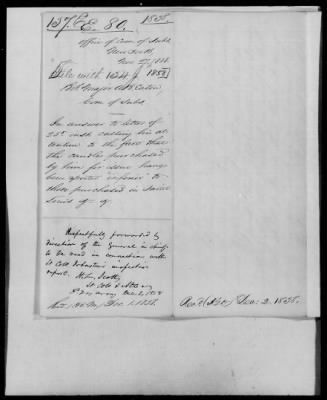 157. E. 80. 1858.
Office of Com of Subs
New York
Nov 27, 1858.
File with 1624 1858
Bvt Major A. B. Eaton,
Com of Subs
In answer to letter of
23d inst. calling his at-
tention to the fact that
the candles purchased
by him for issue have
been reported inferior to
those purchased in Saint
Louis
Respectfully forwarded by
direction of the General in chief
to be used in connection with
Lt Col Johnston's inspection
report. H. L. Scott
Lt Col &
Dec. 1. 1858.
Rec'd Dec: 2. 1858.